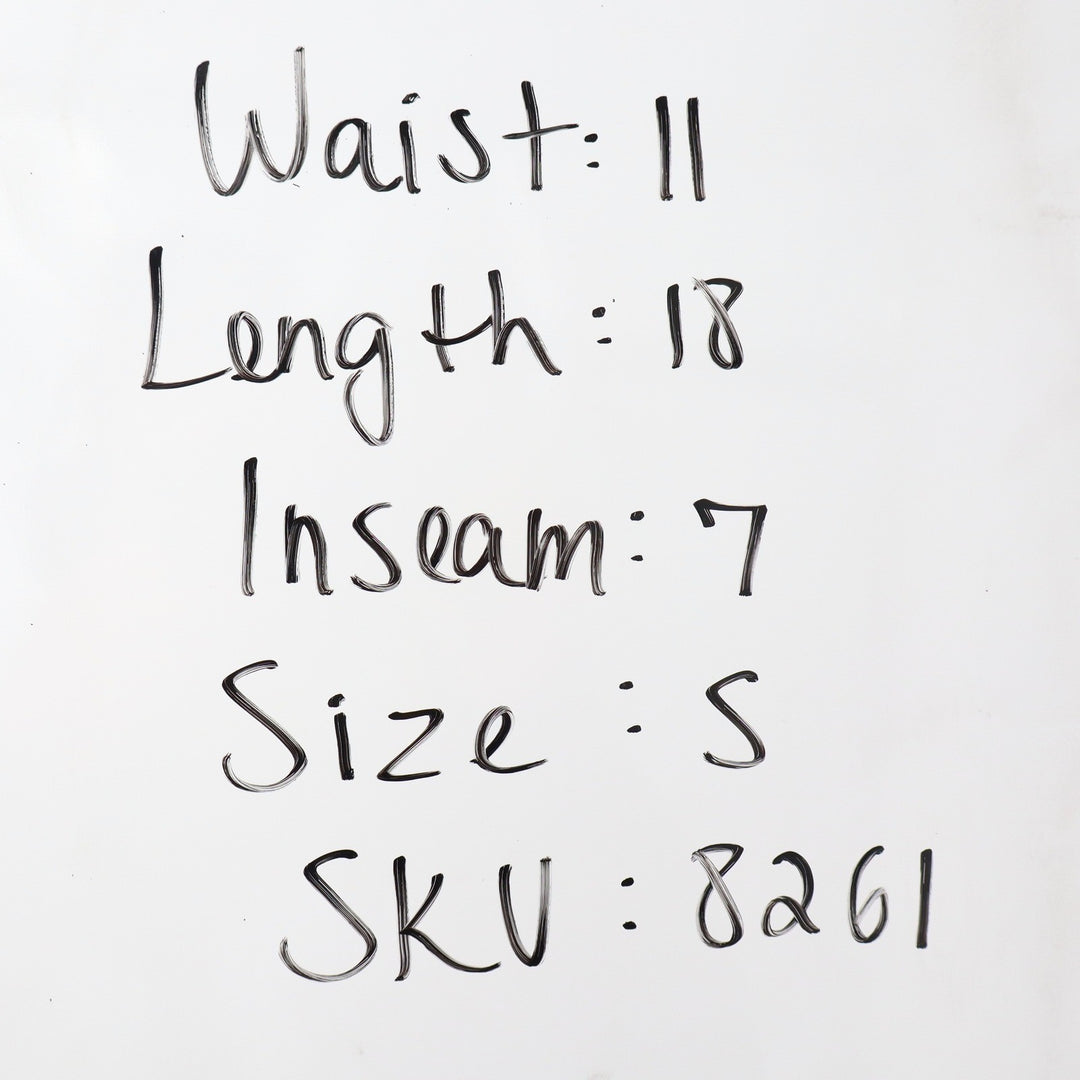 Waist: 11
Length: 18
Inseam: 7
Size: S
SKU: 8261